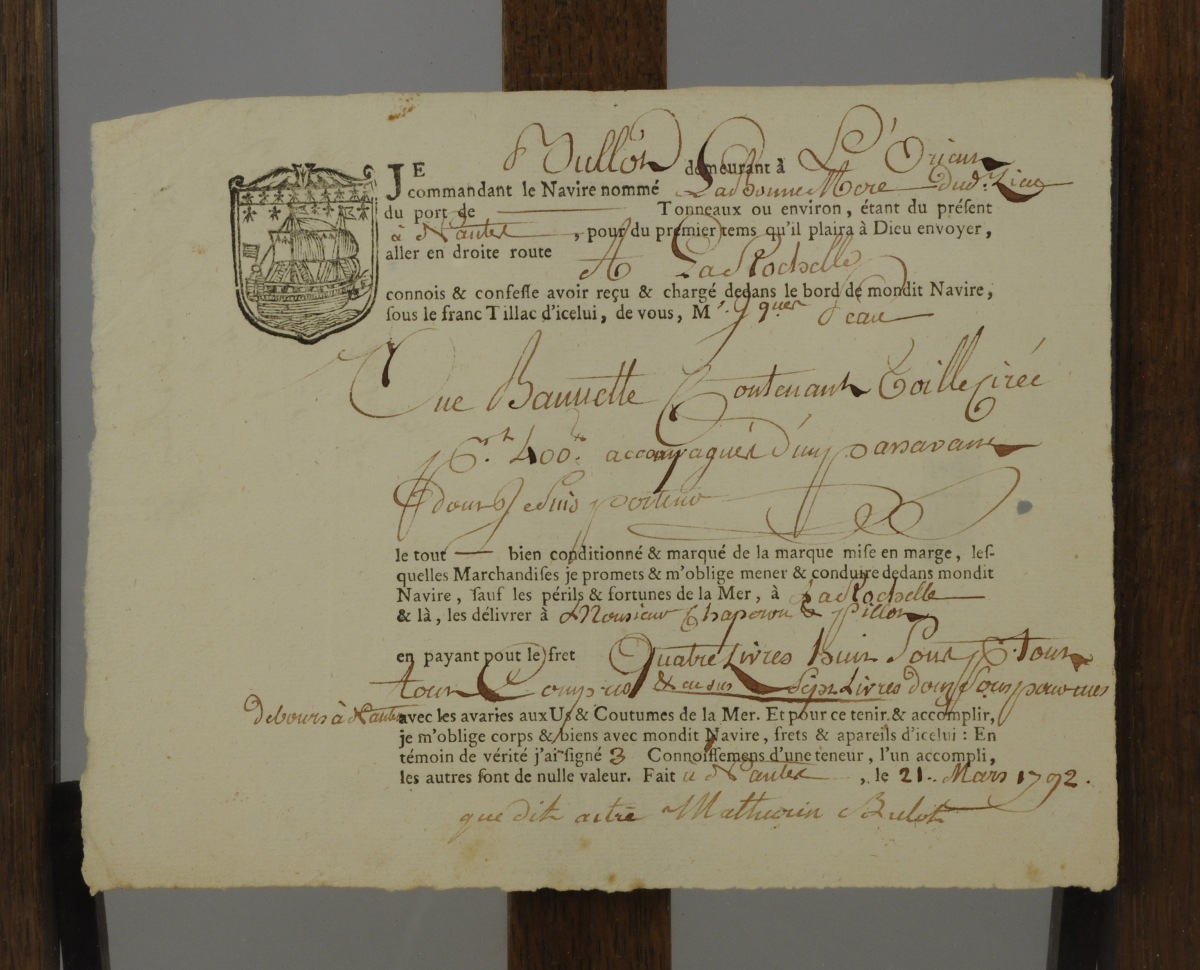 JE Bullot demeurant à L'Orient
commandant le Navire nommé La Bonne Mere dud. Lieu
du port de Tonneaux ou environ, étant du préſent
à Nantes, pour du premier tems qu'il plaira à Dieu envoyer,
aller en droite route A La Rochelle
connois & confeſſe avoir reçu & chargé dedans le bord de mondit Navire,
ſous le franc Tillac d'icelui, de vous, M
Une Bannette Contenant Toille Cirée
400 accompagnés d'un passavant
dont Je Suis porteur
le tout bien conditionné & marqué de la marque miſe en marge, leſ-
quelles Marchandiſes je promets & m'oblige mener & conduire dedans mondit
Navire, ſauf les périls & fortunes de la Mer, à La Rochelle
& là, les délivrer à Monsieur Chaperon & Pillon
en payant pout le fret Quatre Livres huit Sous pr. tout
tout Compris & en sus Sept Livres douze Sous pour mes
debours à Nantes avec les avaries aux Us & Coutumes de la Mer. Et pour ce tenir & accomplir,
je m'oblige corps & biens avec mondit Navire, frets & apareils d'icelui : En
témoin de vérité j'ai ſigné 3 Connoiſſemens d'une teneur, l'un accompli,
les autres ſont de nulle valeur. Fait à Nantes, le 21. Mars 1792.
que dit autre Mathurin Bulot